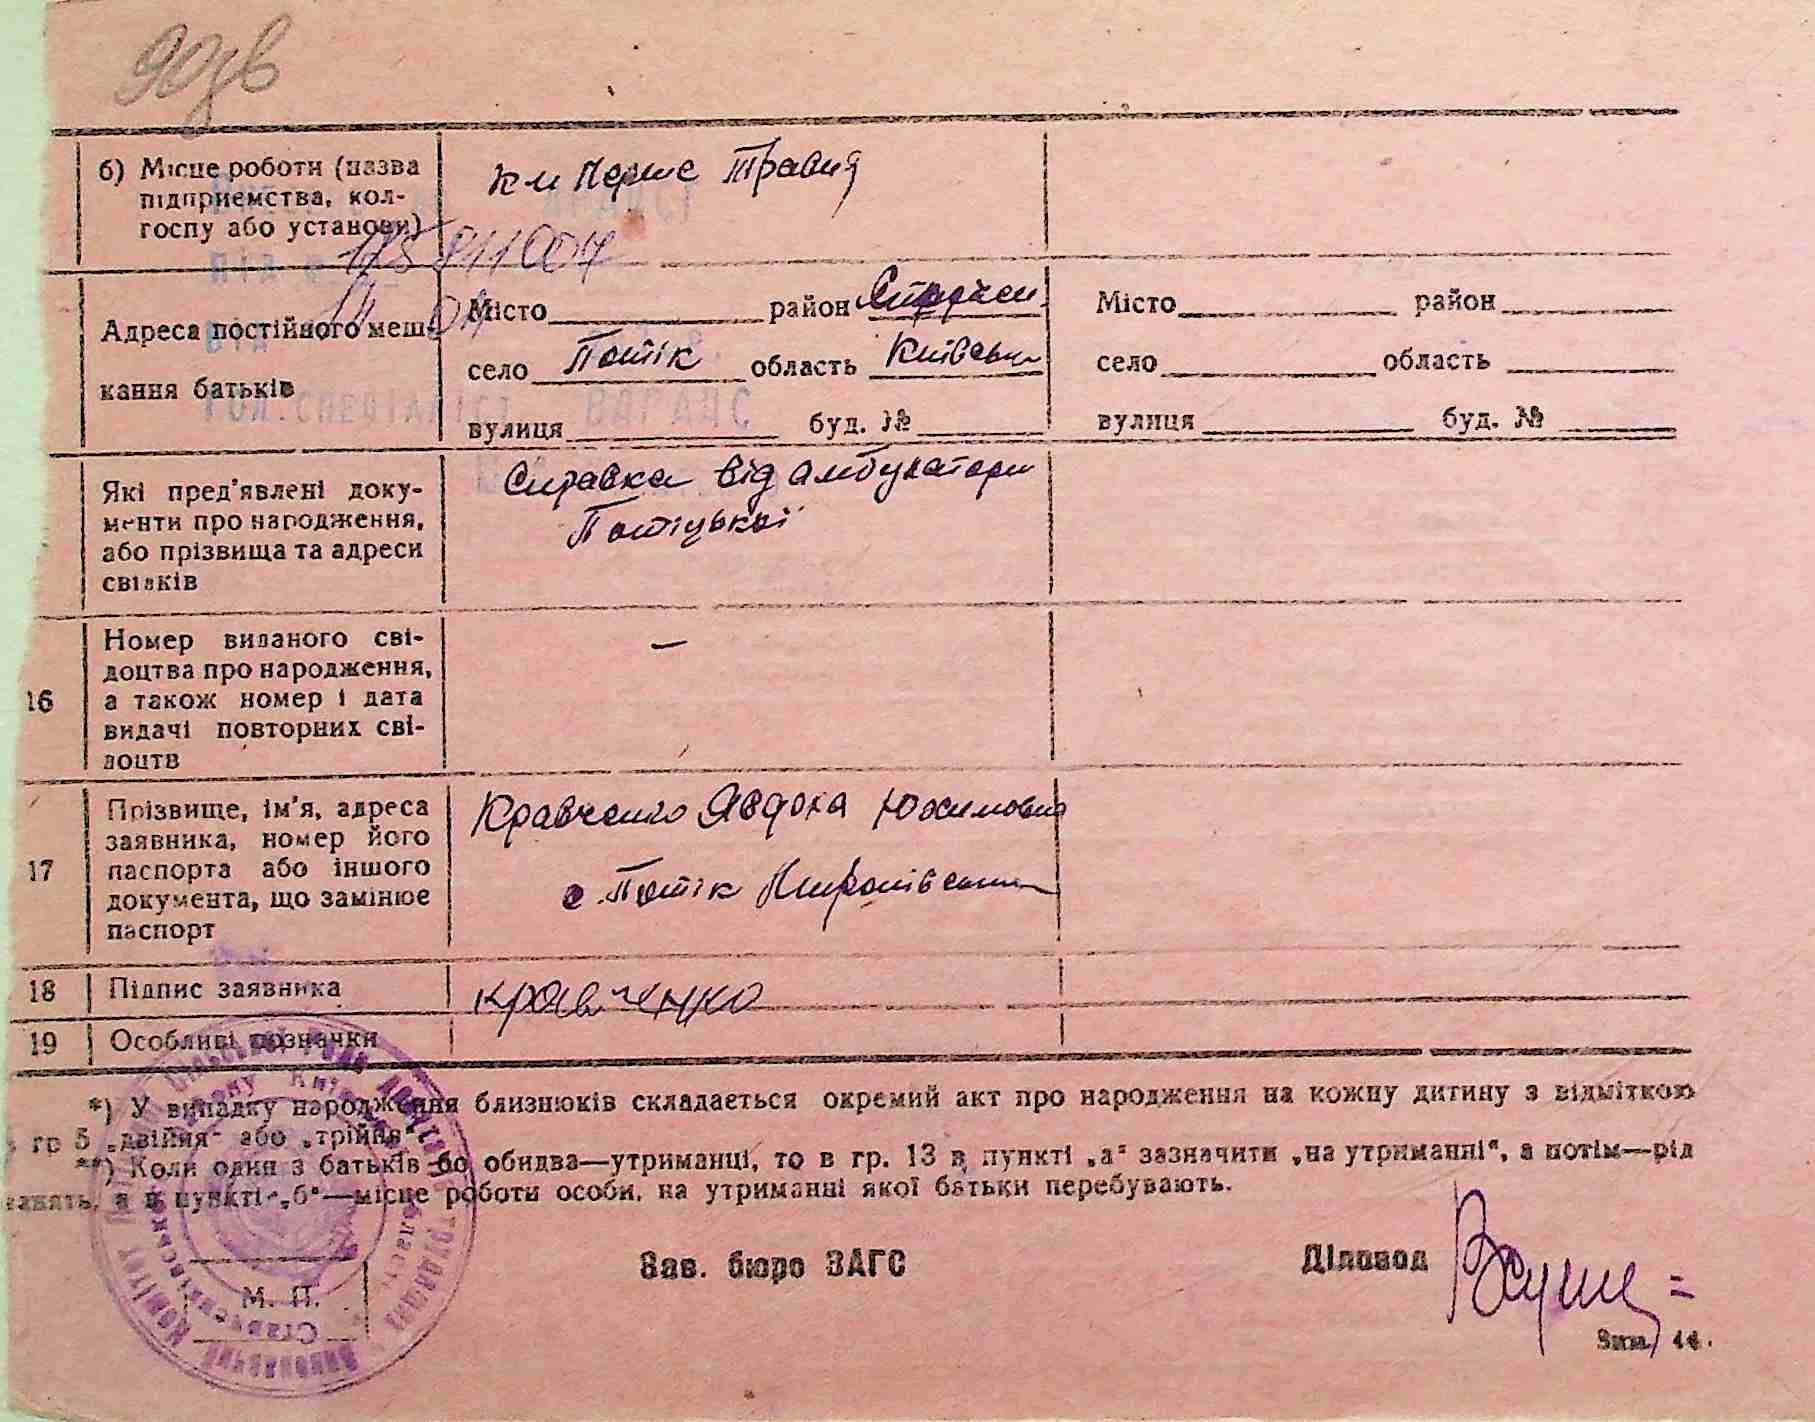 б) Місце роботи (назва
підприємства, кол-
госпу або установи)
км Перше Травня
Адреса постійного меш-
кання батьків
Місто район
село Потік область Київськ
вулиця буд. №
Місто район
село область
вулиця буд. №
ГОЛ. СПЕЦІАЛІСТ
Які пред'явлені доку-
менти про народження,
або прізвища та адреси
свідків
Справка від амбулатори
Потіцької
16
Номер виданого сві-
доцтва про народження,
а також номер і дата
видачі повторних сві-
доцтв
–
17
Прізвище, ім'я, адреса
заявника, номер його
паспорта або іншого
документа, що замінює
паспорт
Кравченко Явдоха Юхимовна
с. Потік Миронівськ
18 Підпис заявника
кравченко
19 Особливі позначки
*) У випадку народження близнюків складається окремий акт про народження на кожну дитину з відміткою
гр 5 „двійня" або „трійня".
**) Коли один з батьків бо обидва—утриманці, то в гр. 13 в пункті „а" зазначити „на утриманні", а потім—рід
занять, а в пункті „б"—місце роботи особи, на утриманні якої батьки перебувають.
М. П.
Зав. бюро ЗАГС
Діловод
Зам. 44.